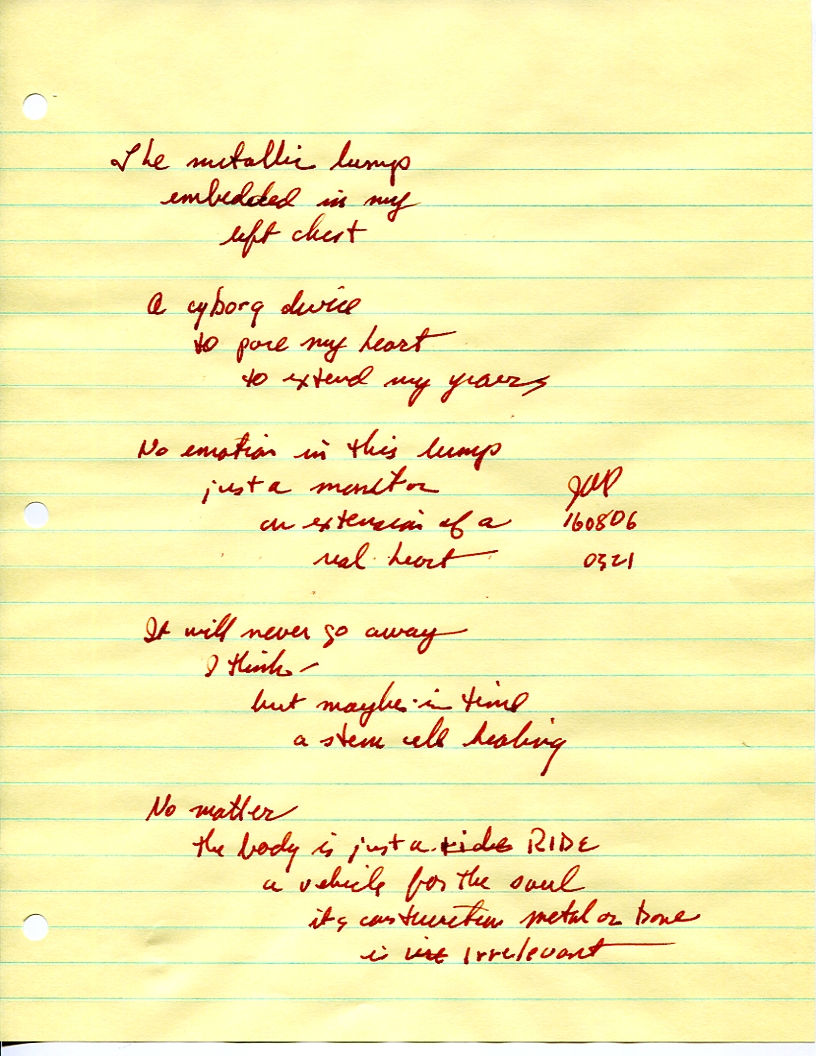 The metallic lump
embedded in my
left chest
A cyborg device
to pace my heart
to extend my years
No emotion in this lump
just a monitor
an extension of a
real heart
JWP
160806
0321
It will never go away
I think -
but maybe in time
a stem cell healing
No matter
the body is just a ride RIDE
a vehicle for the soul
its construction metal or bone
is irrelevant